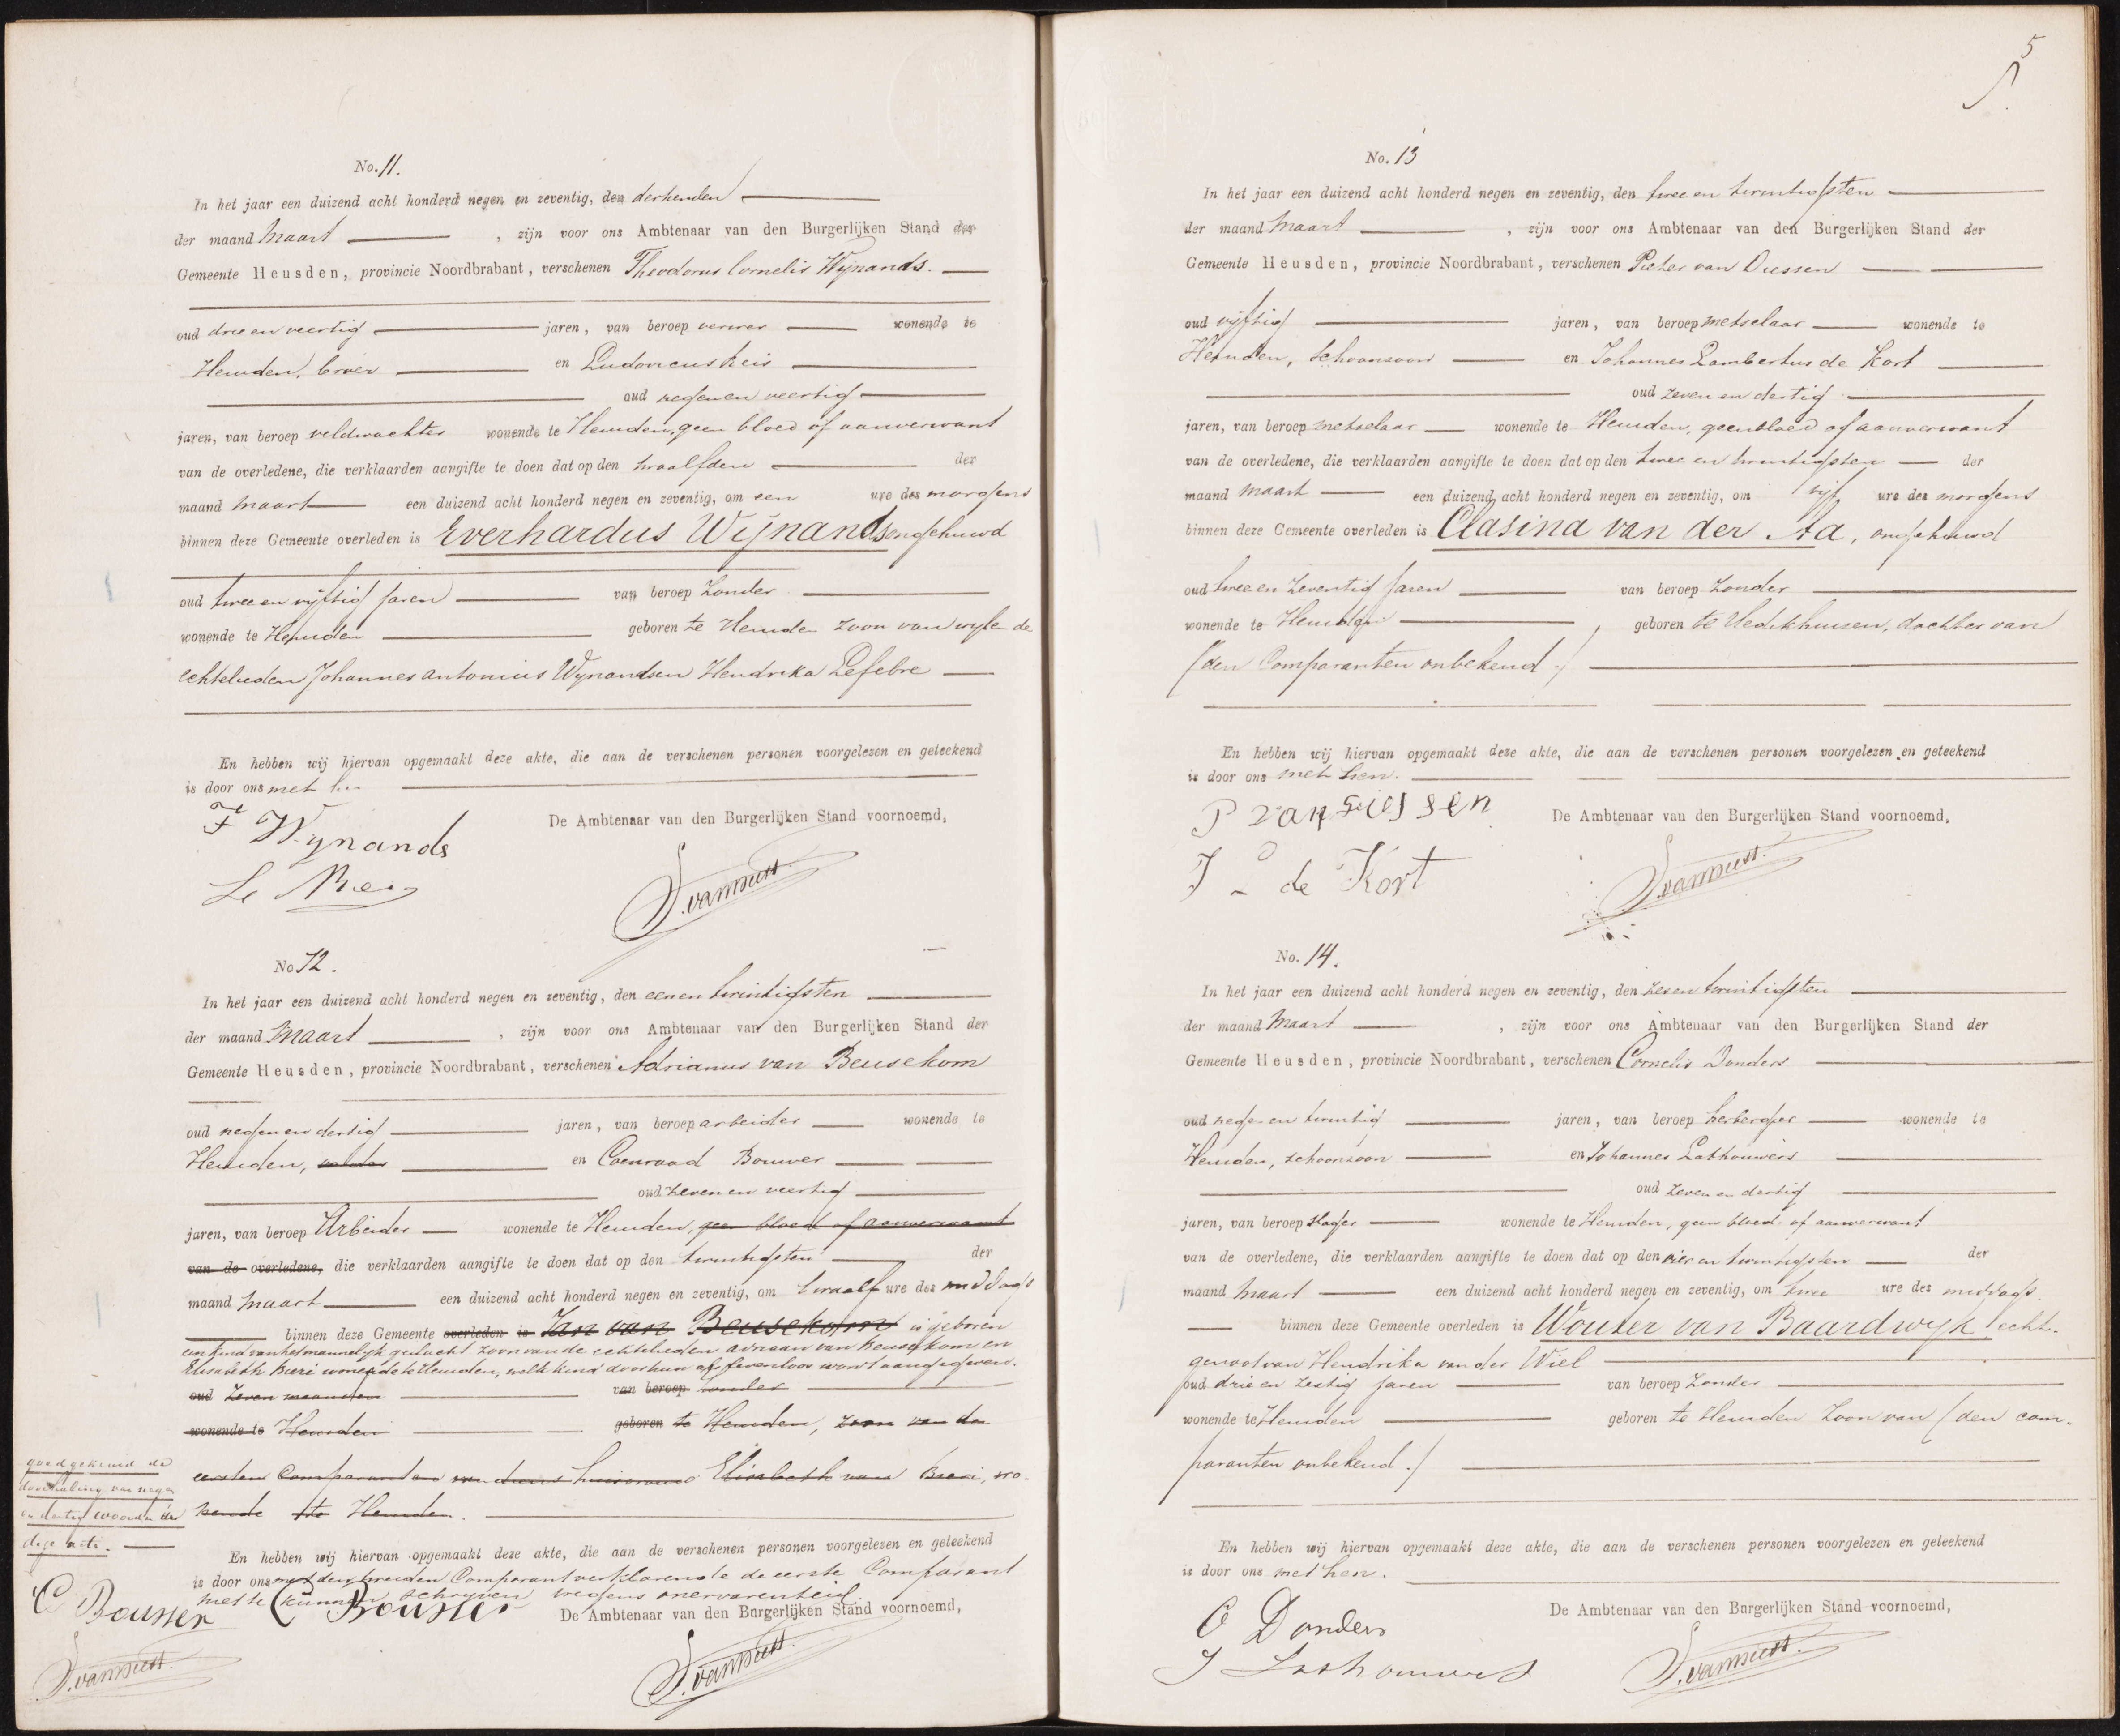 No. 11.
In het jaar een duizend acht honderd negen en zeventig, den dertienden
der maand Maart , zijn voor ons Ambtenaar van den Burgerlijken Stand der
Gemeente Heusden, provincie Noordbrabant, verschenen Theodorus Cornelis Wijnands.
oud drie en veertig jaren, van beroep verwer wonende te
Heusden, broer en Ludovicus Reis
oud negen en veertig
jaren, van beroep veldwachter wonende te Heusden, geen bloed of aanverwant
van de overledene, die verklaarden aangifte te doen dat op den twaalfden der
maand Maart een duizend acht honderd negen en zeventig, om een ure des morgens
binnen deze Gemeente overleden is Everhardus Wijnands ongehuwd
oud twee en vijftig jaren van beroep zonder
wonende te Heusden geboren te Heusden zoon van wylen de
echtelieden Johannes Antonius Wynands en Hendrika Lefebre
En hebben wij hiervan opgemaakt deze akte, die aan de verschenen personen voorgelezen en geteekend
is door ons met hen
De Ambtenaar van den Burgerlijken Stand voornoemd,
Wynands
No. 12.
In het jaar een duizend acht honderd negen en zeventig, den een en twintigsten
der maand Maart , zijn voor ons Ambtenaar van den Burgerlijken Stand der
Gemeente Heusden, provincie Noordbrabant, verschenen Adrianus van Beusekom
oud negen en dertig jaren, van beroep arbeider wonende te
Heusden, vader en Coenraad Bouwer
oud zeven en veertig
jaren, van beroep Arbeider wonende te Heusden, geen bloed of aanverwant
van de overledene, die verklaarden aangifte te doen dat op den twintigsten der
maand Maart een duizend acht honderd negen en zeventig, om twaalf ure des middags
binnen deze Gemeente overleden is Jan van Beusekom is geboren
een kind van het mannelyk geslacht zoon van de echtelieden Adriaan van Beusekom en
Elisabeth wonende te Heusden, welk kind door hun als levenloos wordt aangegeven.
oud zeven maanden van beroep zonder
wonende te Heusden geboren te Heusden, zoon van den
eersten Comparant en van diens huisvrouw Elisabeth van wo-
nende te Heusden.
goedgekeurd de
doorhaling van negen
en dertig woorden in
deze acte.
En hebben wij hiervan opgemaakt deze akte, die aan de verschenen personen voorgelezen en geteekend
is door ons met den tweeden Comparant verklarende de eerste Comparant
niet te kunnen schryven wegens onervarenheid
C Bouwer
C Bouwer
De Ambtenaar van den Burgerlijken Stand voornoemd,
5
No. 13
In het jaar een duizend acht honderd negen en zeventig, den twee en twintigsten
der maand Maart , zijn voor ons Ambtenaar van den Burgerlijken Stand der
Gemeente Heusden, provincie Noordbrabant, verschenen Pieter van Diessen
oud vijftig jaren, van beroep metselaar wonende te
Heusden, schoonzoon en Johannes Lambertus de Kort
oud zeven en dertig
jaren, van beroep metselaar wonende te Heusden, geen bloed of aanverwant
van de overledene, die verklaarden aangifte te doen dat op den twee en twintigsten der
maand Maart een duizend acht honderd negen en zeventig, om vijf ure des morgens
binnen deze Gemeente overleden is Clasina van der Aa, ongehuwd
oud twee en zeventig jaren van beroep zonder
wonende te Heusden geboren te Hedikhuizen, dochter van
(den Comparanten onbekend.)
En hebben wij hiervan opgemaakt deze akte, die aan de verschenen personen voorgelezen en geteekend
is door ons met hen.
P van Diessen
De Ambtenaar van den Burgerlijken Stand voornoemd,
J de Kort
No. 14.
In het jaar een duizend acht honderd negen en zeventig, den zes en twintigsten
der maand Maart , zijn voor ons Ambtenaar van den Burgerlijken Stand der
Gemeente Heusden, provincie Noordbrabant, verschenen Cornelis Donders
oud negen en twintig jaren, van beroep herbergier wonende te
Heusden, schoonzoon en Johannes Lathouwers
oud zeven en dertig
jaren, van beroep slager wonende te Heusden, geen bloed- of aanverwant
van de overledene, die verklaarden aangifte te doen dat op den vier en twintigsten der
maand Maart een duizend acht honderd negen en zeventig, om twee ure des middags
binnen deze Gemeente overleden is Wouter van Baardwyk echt-
genoot van Hendrika van der Wiel
oud drie en zestig jaren van beroep zonder
wonende te Heusden geboren te Heusden zoon van (den com-
paranten onbekend.)
En hebben wij hiervan opgemaakt deze akte, die aan de verschenen personen voorgelezen en geteekend
is door ons met hen.
De Ambtenaar van den Burgerlijken Stand voornoemd,
C Donders
J Lathouwers